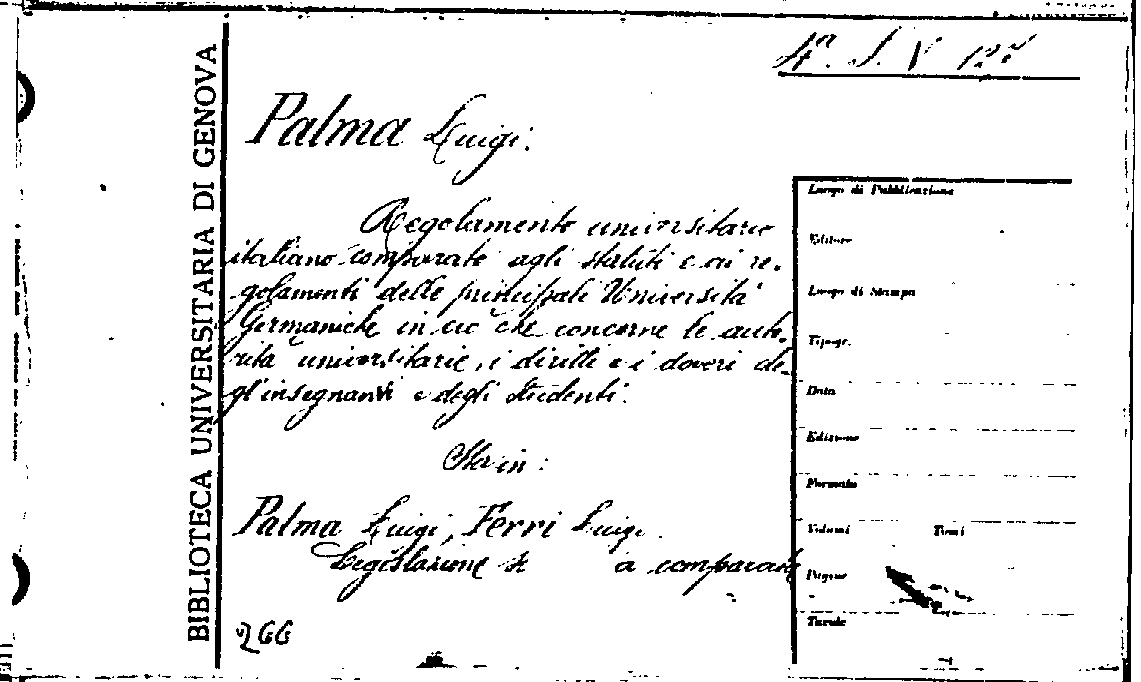 4ª. S. V 127
BIBLIOTECA UNIVERSITARIA DI GENOVA
Palma Luigi.
Regolamento universitario
italiano comparato agli statuti e ai re-
golamenti delle principali Università
Germaniche in ciò che concerne le auto-
rità universitarie, i diritti e i doveri de-
gl'insegnanti e degli studenti.
Sta in:
Palma Luigi, Ferri Luigi.
Legislazione a comparata
266
Luogo di Pubblicazione
Editore
Luogo di Stampa
Tipogr.
Data
Edizione
Formato
Volumi Tomi
Pagine
Tavole